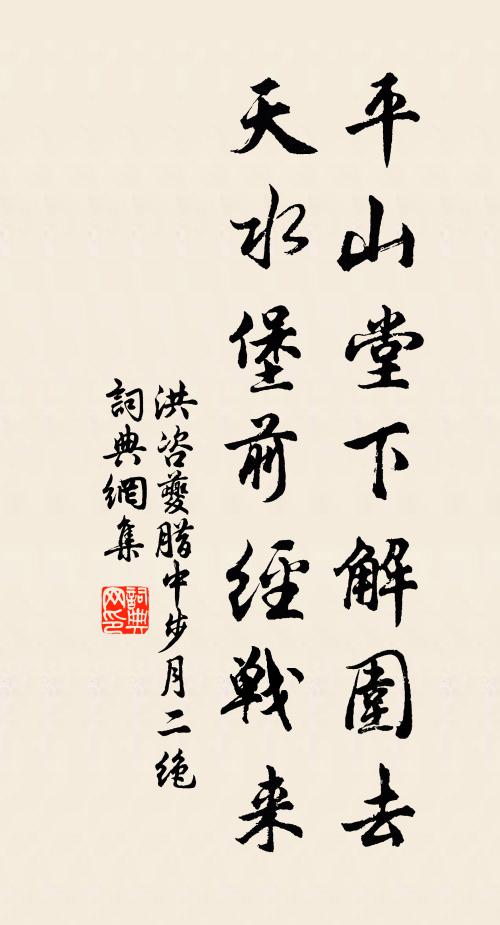 平山堂下解圍去
天水堡前經戰来
洪咨夔腊中步月二绝
詞典網集
詞典网印